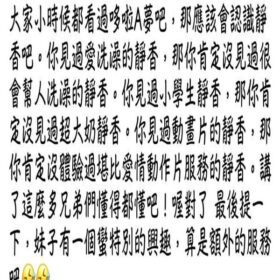 大家小時候都看過哆啦A夢吧，那應該會認識靜
香吧。你見過愛洗澡的靜香，那你肯定沒見過很
會幫人洗澡的靜香。你見過小學生靜香，那你肯
定沒見過超大奶靜香。你見過動畫片的靜香，那
你肯定沒體驗過堪比愛情動作片服務的靜香。講
了這麼多兄弟們懂得都懂吧！喔對了 最後提一
下，妹子有一個蠻特別的興趣，算是額外的服務
吧😆😆